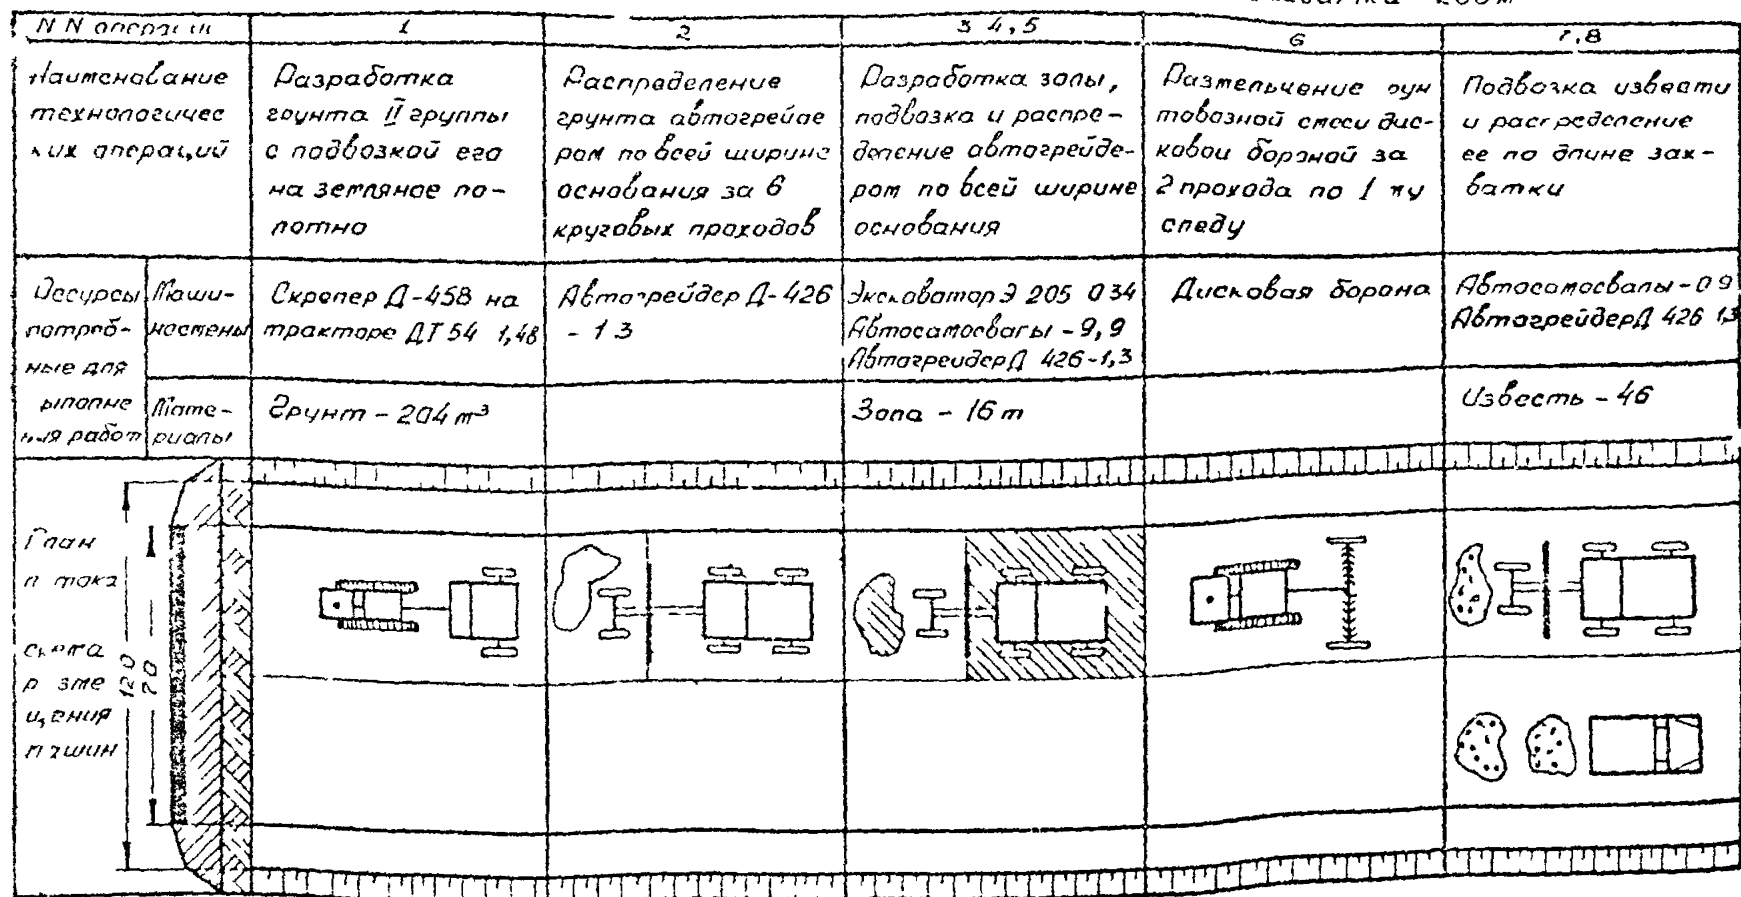 200м
N N операции
1
2
3 4, 5
6
7, 8
Наименование
технологичес
ких операций
Разработка
грунта II группы
с подвозкой его
на земляное по-
лотно
Распределение
грунта автогрейде
ром по всей ширине
основания за 6
круговых проходов
Разработка золы,
подвозка и распре-
деление автогрейде-
ром по всей ширине
основания
Размельчение рун
товозной смеси дис-
ковой бороной за
2 прохода по 1 му
следу
Подвозка извести
и распределение
ее по длине зах-
ватки
Ресурсы
потреб-
ные для
ыполне
ния работ
Маши-
носмены
Скрепер Д-458 на
тракторе ДТ 54 1,48
Автогрейдер Д-426
- 1 3
Экскаватор Э 205 0 34
Автосамосвалы - 9,9
Автогрейдер Д 426-1,3
Дисковая борона
Автосамосвалы - 0 9
Автогрейдер Д 426 1,3
Мате-
риалы
Грунт - 204 м³
Зола - 16 т
Известь - 46
План
п тока
схема
р зме
щения
машин
12 0
7 0